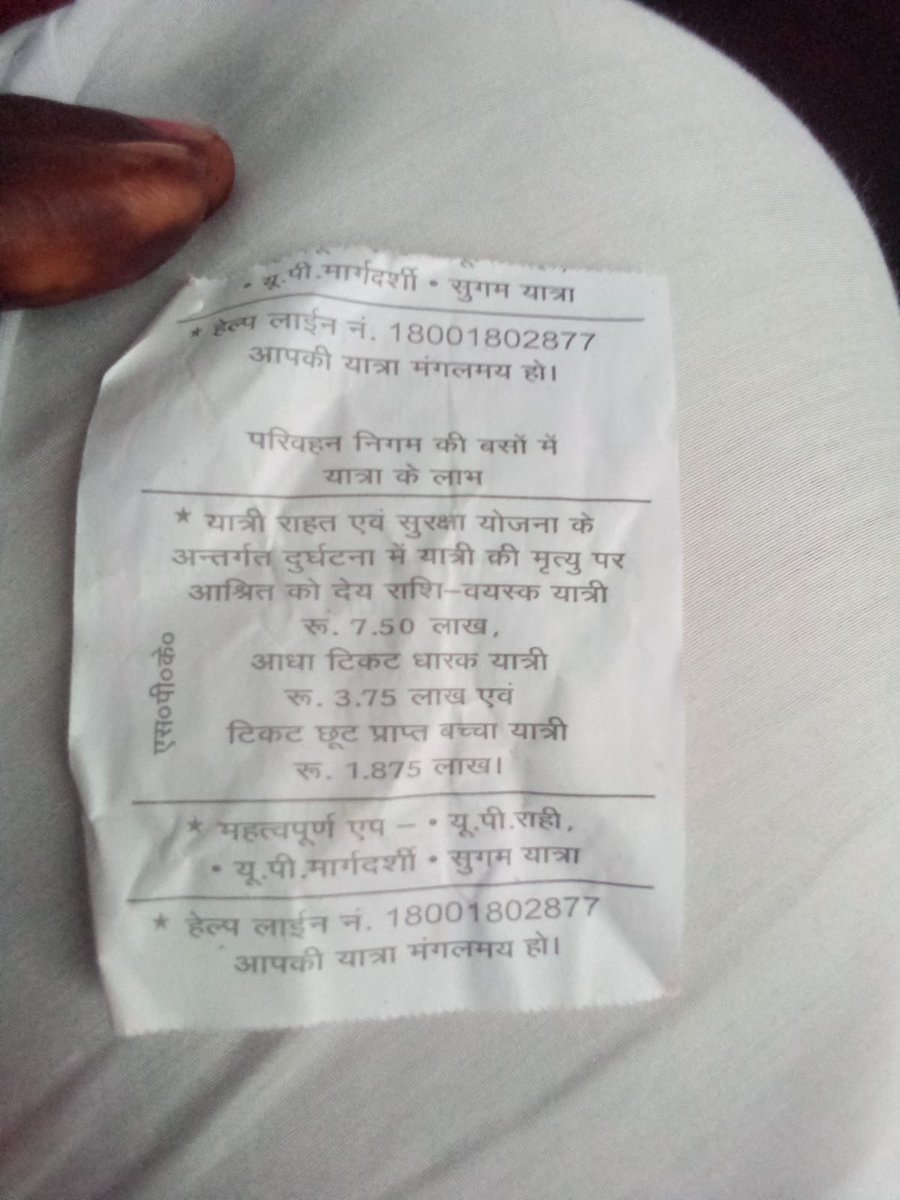 • यू.पी.मार्गदर्शी • सुगम यात्रा
* हेल्प लाईन नं. 18001802877
आपकी यात्रा मंगलमय हो।
परिवहन निगम की बसों में
यात्रा के लाभ
* यात्री राहत एवं सुरक्षा योजना के
अन्तर्गत दुर्घटना में यात्री की मृत्यु पर
आश्रित को देय राशि-वयस्क यात्री
रूं. 7.50 लाख,
आधा टिकट धारक यात्री
रू. 3.75 लाख एवं
टिकट छूट प्राप्त बच्चा यात्री
रू. 1.875 लाख।
एस०पी०के०
* महत्वपूर्ण एप – • यू.पी.राही,
• यू.पी.मार्गदर्शी • सुगम यात्रा
* हेल्प लाईन नं. 18001802877
आपकी यात्रा मंगलमय हो।